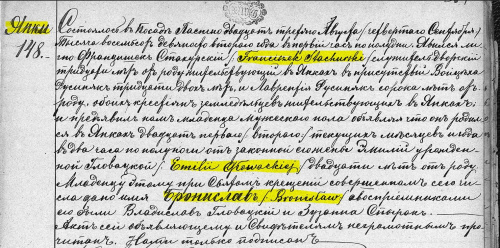 Янки
148.
Состоялось въ Посадѣ Ласкѣ двадцать третьяго Августа /четвертаго Сентября/
Тысяча восемьсотъ девяносто втораго года въ первый часъ по полудни. Явился лич-
но Францишекъ Стахурскій /Franciszek Stachurski/ служитель дворскій
тридцати лѣтъ отъ роду жительствующій въ Янкахъ въ присутствіи Войцѣха
Русинякъ тридцати двухъ лѣтъ, и Лаврентія Русинякъ сорока лѣтъ отъ
роду, обоихъ крестьянъ земледѣльцевъ жительствующихъ въ Янкахъ.
и предъявилъ намъ младенца мужескаго пола объявляя что онъ родил-
ся въ Янкахъ двадцать перваго /втораго/ текущихъ мѣсяцевъ и года
въ два часа по полуночи отъ законной его жены Эмиліи урожден-
ной Гловацкой /Emilii Głowackiej/ двадцати лѣтъ отъ роду.
Младенцу этому при Святомъ крещеніи совершенномъ сего чи-
сла дано имя Брониславъ /Bronisław/ а воспріемниками
его были Владиславъ Гловацкій и Зузанна
Актъ сей объявляющему и Свидѣтелямъ неграмотнымъ про-
читанъ. Нами только подписанъ